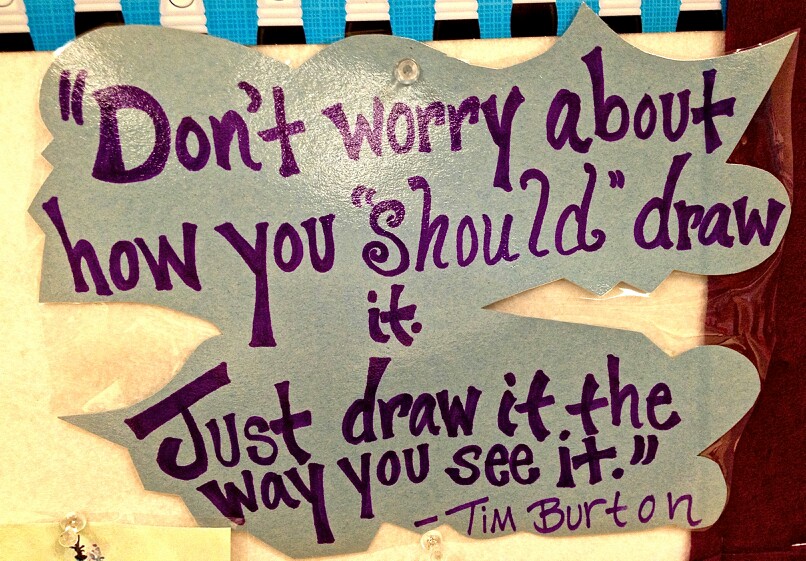 "Don't worry about
how you "should" draw
it.
Just draw it the
way you see it."
- Tim Burton